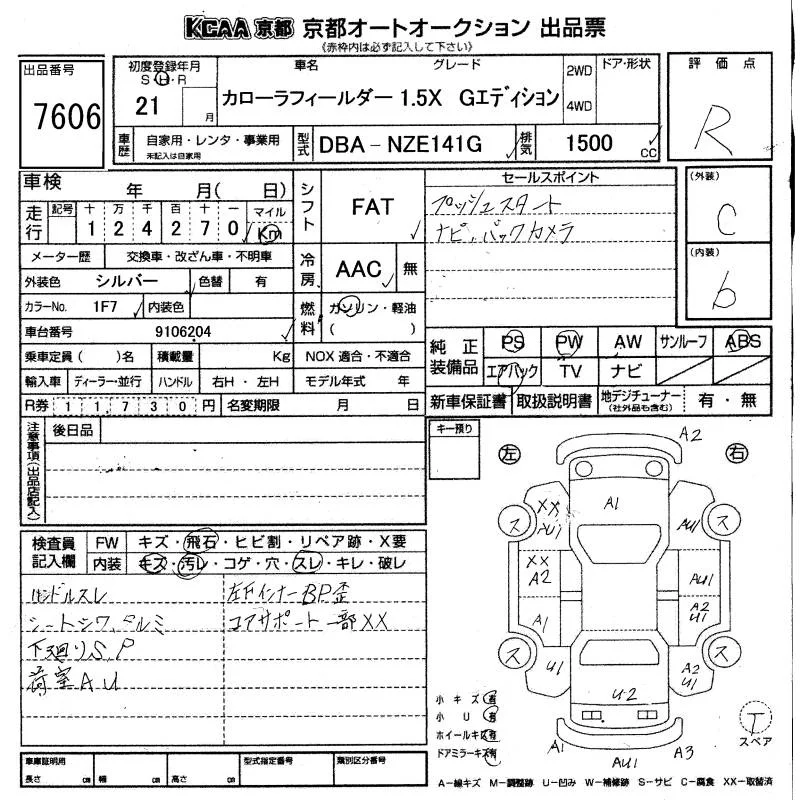 KCAA 京都 京都オートオークション 出品票
《赤枠内は必ず記入して下さい》
出品番号
7606
初度登録年月
S H R
21 月
車名 グレード
カローラフィールダー 1.5X Gエディション
2WD
4WD
ドア・形状
評価点
R
車歴 自家用・レンタ・事業用
未記入は自家用
型式 DBA-NZE141G
排気 1500 cc
車検 年 月( 日)
走行 記号 十万千百十
1 2 4 2 7 0
マイル
Km
シフト FAT
セールスポイント
プッシュスタート
ナビ、バックカメラ
(外装)
C
(内装)
b
メーター歴 交換車・改ざん車・不明車
冷房 AAC 無
外装色 シルバー 色替 有
カラーNo. 1F7 内装色
燃料 ガソリン・軽油
( )
車台番号 9106204
純正装備品 PS PW AW サンルーフ ABS
エアバック TV ナビ
乗車定員( )名 積載量 Kg NOX 適合・不適合
輸入車 ディーラー・並行 ハンドル 右H・左H モデル年式 年
新車保証書 取扱説明書 地デジチューナー(社外品も含む) 有・無
R券 11730円 名変期限 月 日
注意事項(出品店記入)
後日品
キー預り
左 右
検査員記入欄
FW キズ・飛石・ヒビ割・リペア跡・X要
内装 キズ・汚レ・コゲ・穴・スレ・キレ・破レ
ハンドルスレ
シートシワ、タルミ
下廻りS,P
荷室AU
左Fインナー BP歪
コアサポート一部XX
A2
A1
XX
AU1
ス
ス
AU1
XX
A2
AU1
A1
A2
U1
ス
ス
U1
A2
U1
U2
A1
AU1
A3
小キズ 有
小U 有
ホイールキズ 有
ドアミラーキズ 有
T
スペア
車庫証明用
長さ cm 幅 cm 高さ cm
型式指定番号
類別区分番号
A-線キズ M-調整跡 U-凹み W-補修跡 S-サビ C-腐食 XX-取替済